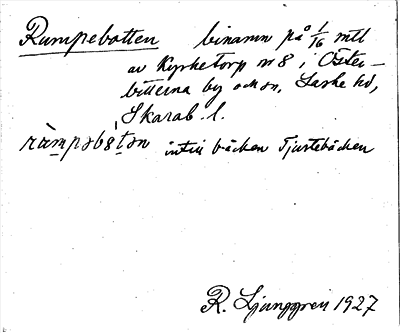 Rumpebotten binamn på 1/16 mtl
av Kyrketorp nr 8 i Öster-
bitterna by och sn, Laske hd,
Skarab. l.
intill bäcken Tjustebäcken
R. Ljunggren 1927